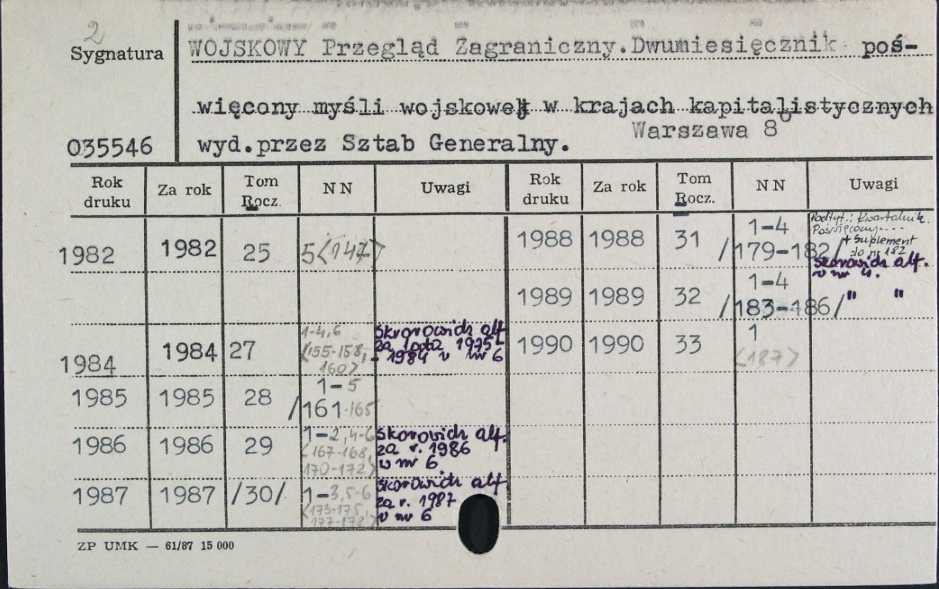 2
Sygnatura
WOJSKOWY Przegląd Zagraniczny.Dwumiesięcznik poś-
więcony myśli wojskowej w krajach kapitalistycznych
Warszawa 8°
035546 wyd.przez Sztab Generalny.
Rok druku Za rok Tom Rocz. NN Uwagi Rok druku Za rok Tom Rocz. NN Uwagi
1982 1982 25 5(147)
1984 1984 27 1-4,6 (155-158, 160) Skorowidz alf. za lata 1975-1984 w nr 6
1985 1985 28 1-5 /161-165
1986 1986 29 1-2,4-6 (167-168, 170-172) Skorowidz alf. za r. 1986 w nr 6
1987 1987 /30/ 1-3,5-6 (173-175, 177-178) Skorowidz alf. za r. 1987 w nr 6
1988 1988 31 1-4 /179-182/ Podtyt.: Kwartalnik Poświęcony... + Suplement do nr 182 Skorowidz alf. w nr 4.
1989 1989 32 1-4 /183-186/ " "
1990 1990 33 1 (187)
ZP UMK — 61/87 15 000